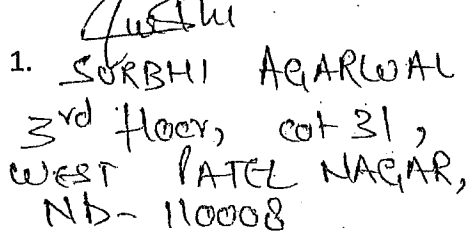 1. SURBHI AGARWAL
3rd floor, cot 31,
WEST PATEL NAGAR,
ND- 110008